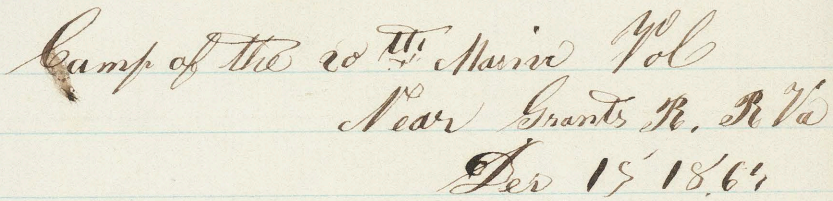 Camp of the 20th Maine Vol
Near Grants R. R Va
Dec 15 1864